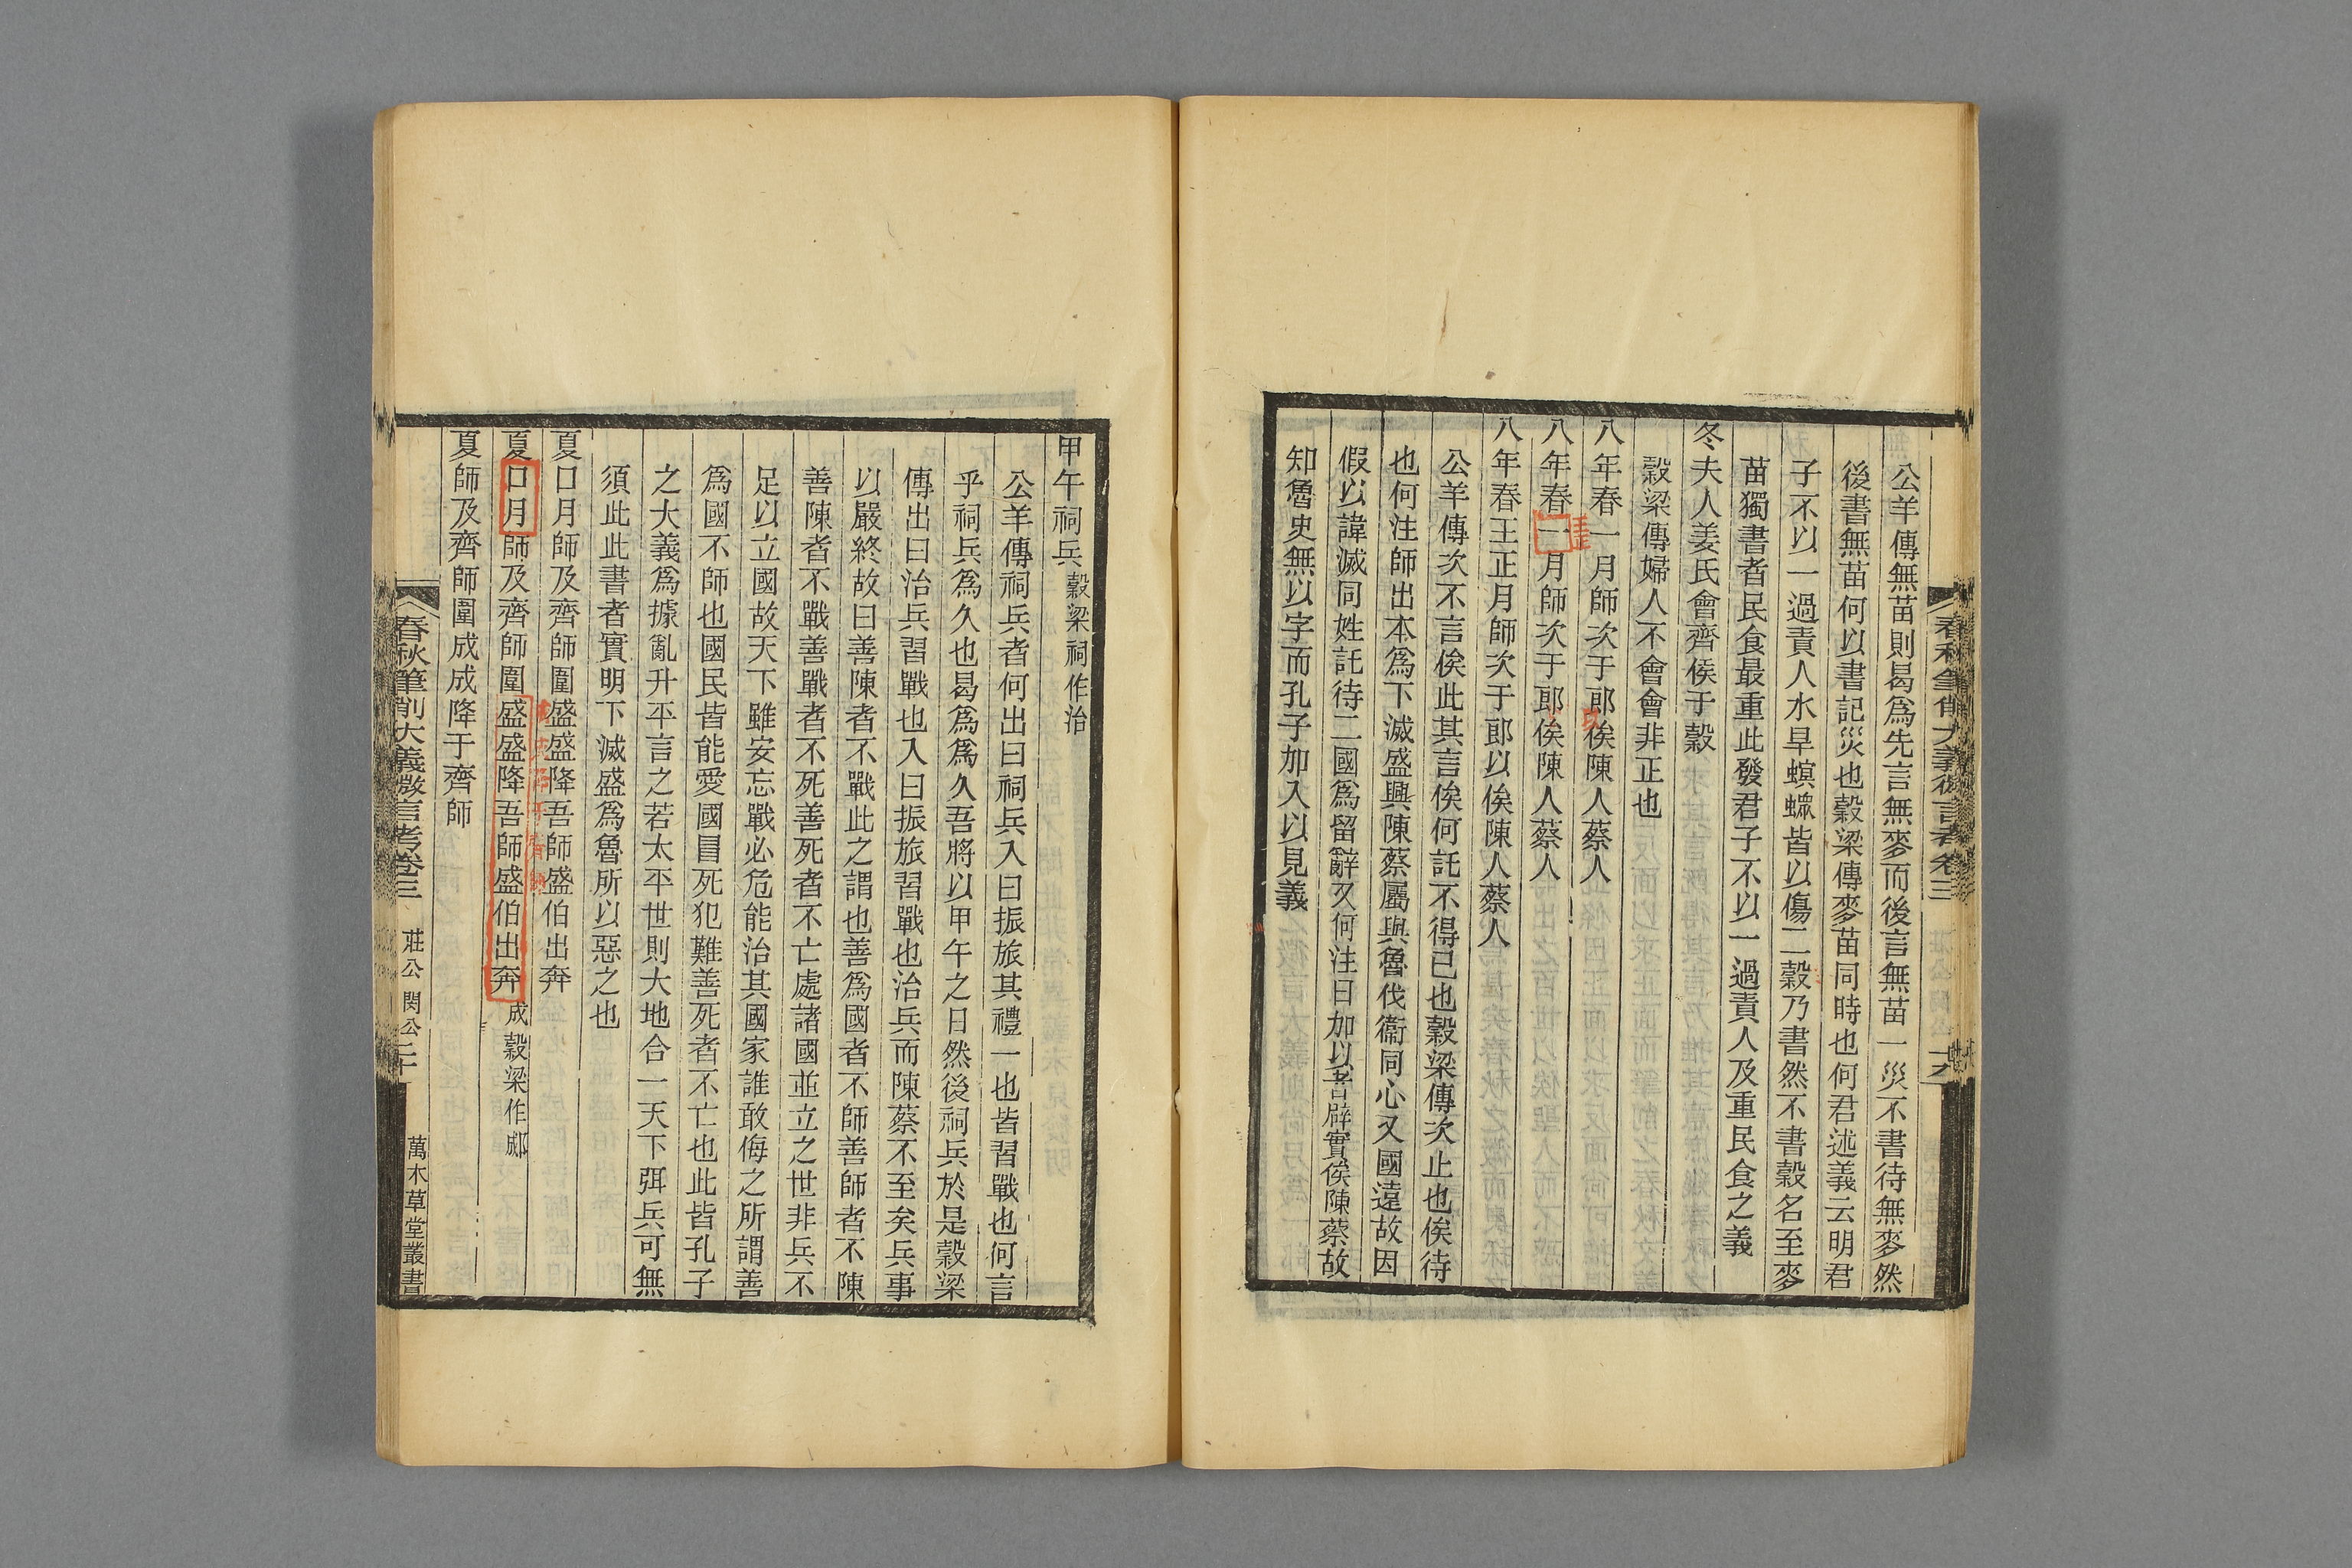 公羊傳無苗則曷爲先言無麥而後言無苗一災不書待無麥然
後書無苗何以書記災也穀梁傳麥苗同時也何君述義云明君
子不以一過責人水旱螟蟓皆以傷二穀乃書然不書穀名至麥
苗獨書者民食最重此發君子不以一過責人及重民食之義
冬夫人姜氏會齊侯于穀
穀梁傳婦人不會會非正也
八年春一月師次于郎俟陳人蔡人
八年春一月師次于郎俟陳人蔡人
八年春王正月師次于郎以俟陳人蔡人
公羊傳次不言俟此其言俟何託不得已也穀梁傳次止也俟待
也何注師出本爲下滅盛興陳蔡屬與魯伐衞同心又國遠故因
假以諱滅同姓託待二國爲留辭又何注曰加以者辟實俟陳蔡故
知魯史無以字而孔子加入以見義
甲午祠兵 穀梁祠作治
公羊傳祠兵者何出曰祠兵入曰振旅其禮一也皆習戰也何言
乎祠兵爲久也曷爲爲久吾將以甲午之日然後祠兵於是穀梁
傳出曰治兵習戰也入曰振旅習戰也治兵而陳蔡不至矣兵事
以嚴終故曰善陳者不戰此之謂也善爲國者不師善師者不陳
善陳者不戰善戰者不死善死者不亡處諸國並立之世非兵不
足以立國故天下雖安忘戰必危能治其國家誰敢侮之所謂善
爲國不師也國民皆能愛國冒死犯難善死者不亡也此皆孔子
之大義爲據亂升平言之若太平世則大地合一天下弭兵可無
須此此書者實明下滅盛爲魯所以惡之也
夏口月師及齊師圍盛盛降吾師盛伯出奔
夏口月師及齊師圍盛盛降吾師盛伯出奔 成穀梁作郕
夏師及齊師圍成成降于齊師
春秋筆削大義微言考卷三 莊公 閔公 二十 萬木草堂叢書